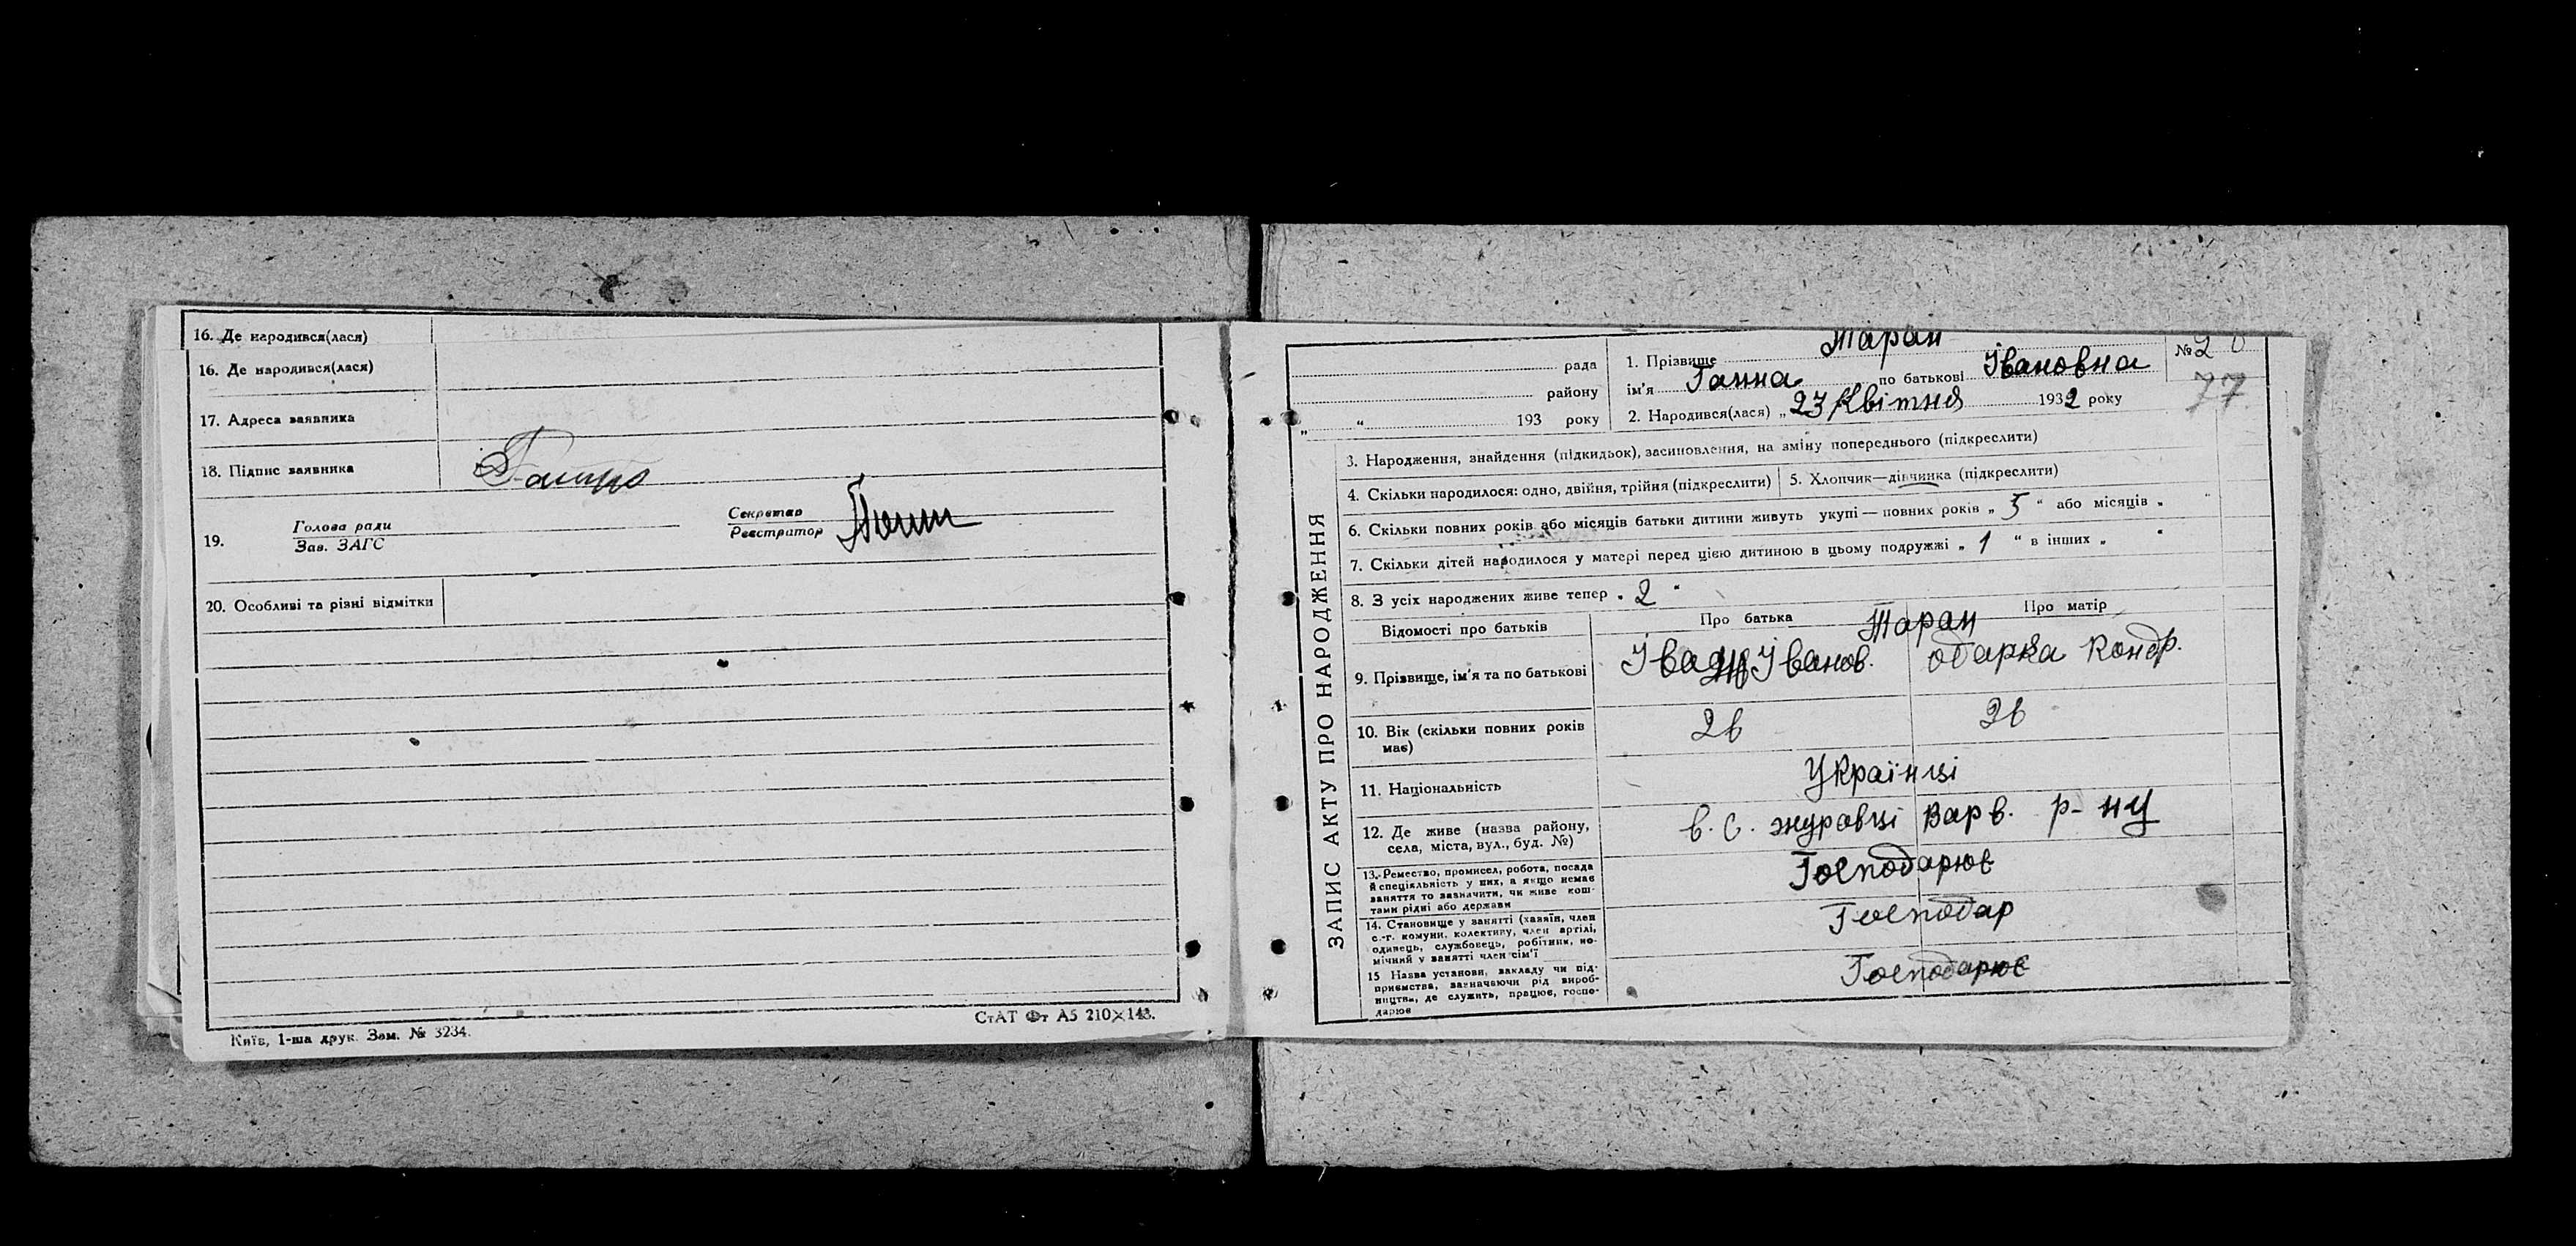 16. Де народився(лася)
16. Де народився(лася)
17. Адреса заявника
18. Підпис заявника
19. Голова ради
Зав. ЗАГС
Секретар
Реєстратор
20. Особливі та різні відмітки
Київ, 1-ша друк. Зам. № 3234.
СтАТ Фт А5 210×148.
ЗАПИС АКТУ ПРО НАРОДЖЕННЯ
рада
району
„ “ 193 року
1. Прізвище Таран
ім'я Ганна по батькові Івановна
2. Народився(лася) „ 23 Квітня 1932 року
№ 20
77
3. Народження, знайдення (підкидьок), засиновлення, на зміну попереднього (підкреслити)
4. Скільки народилося: одно, двійня, трійня (підкреслити)
5. Хлопчик—дівчинка (підкреслити)
6. Скільки повних років або місяців батьки дитини живуть укупі — повних років „ 5 “ або місяців „ “
7. Скільки дітей народилося у матері перед цією дитиною в цьому подружжі „ 1 “ в інших „ “
8. З усіх народжених живе тепер „ 2 “
Відомості про батьків
Про батька
Про матір
Таран
9. Прізвище, ім'я та по батькові
Іван Іванов.
Одарка Кондр.
10. Вік (скільки повних років має)
26
26
11. Національність
Українці
12. Де живе (назва району, села, міста, вул., буд. №)
в. с. Журавці Варв. р-ну
13. Ремество, промисел, робота, посада й спеціяльність у них, а якщо немає заняття то зазначити, чи живе коштами рідні або держави
Господарює
14. Становище у занятті (хазяїн, член с.-г. комуни, колективу, член артілі, одинець, службовець, робітник, помічний у занятті член сім'ї
Господар
15 Назва установи, закладу чи підприємства, зазначаючи рід виробництва, де служить, працює, господарює
Господарює